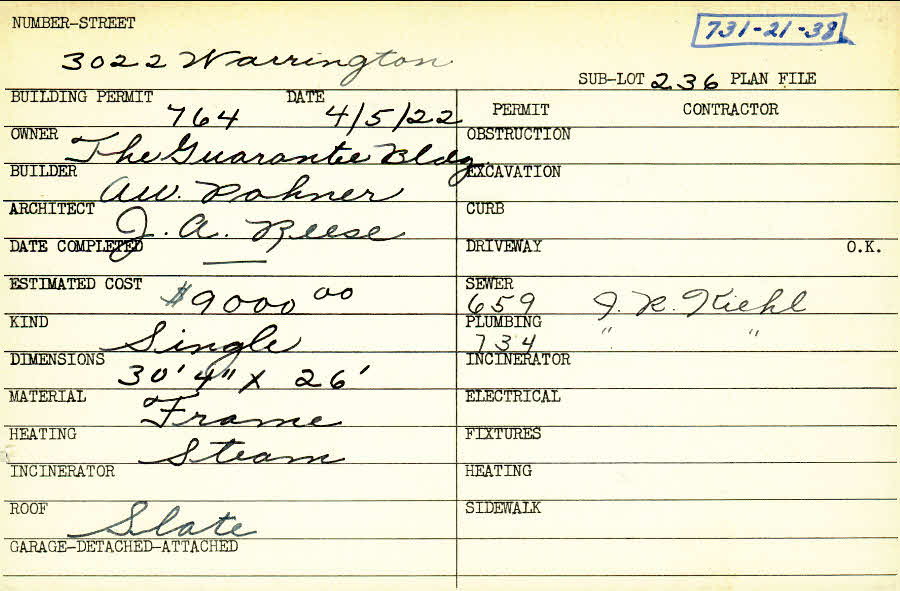 NUMBER-STREET
731-21-38
3022 Warrington
SUB-LOT 236 PLAN FILE
BUILDING PERMIT 764 DATE 4/5/22
PERMIT CONTRACTOR
OWNER The Guarantee Bldg.
OBSTRUCTION
BUILDER A.W. Pohner
EXCAVATION
ARCHITECT J. A. Reese
CURB
DATE COMPLETED —
DRIVEWAY O.K.
ESTIMATED COST $9000 00
SEWER
659 J. R. Kiehl
KIND Single
PLUMBING
734 " "
DIMENSIONS 30' 4" X 26'
INCINERATOR
MATERIAL Frame
ELECTRICAL
HEATING Steam
FIXTURES
INCINERATOR
HEATING
ROOF Slate
SIDEWALK
GARAGE-DETACHED-ATTACHED